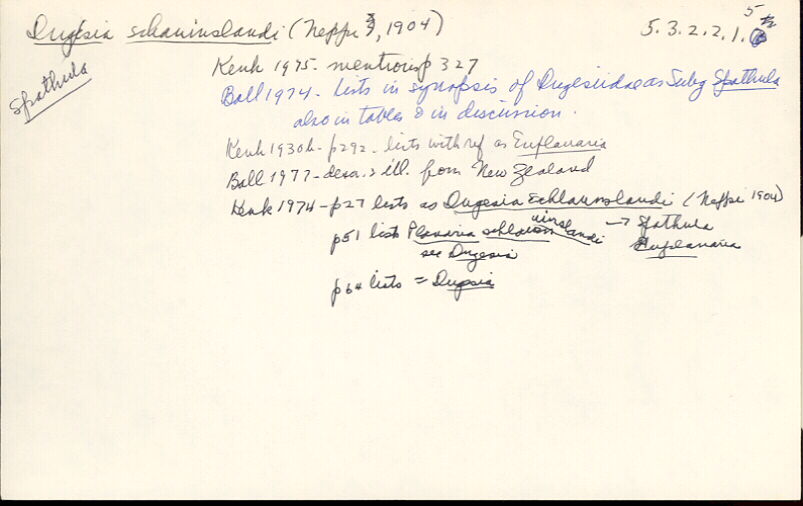 Dugesia schauinslandi (Neppi, 1904) 5.3.2.2.1.5
Spathula
Kenk 1975. mentions p 327
Ball 1974 - lists in synopsis of Dugesiidae as Subg Spathula
also in tables & in discussion.
Kenk 1930b - p292 - lists with ref as Euplanaria
Ball 1977 - descr. & ill. from New Zealand
Kenk 1974 - p27 lists as Dugesia schlauinslandi (Neppi 1904)
p51 lists Planaria schlauinslandi → Spathula
see Dugesia Euplanaria
p64 lists = Dugesia